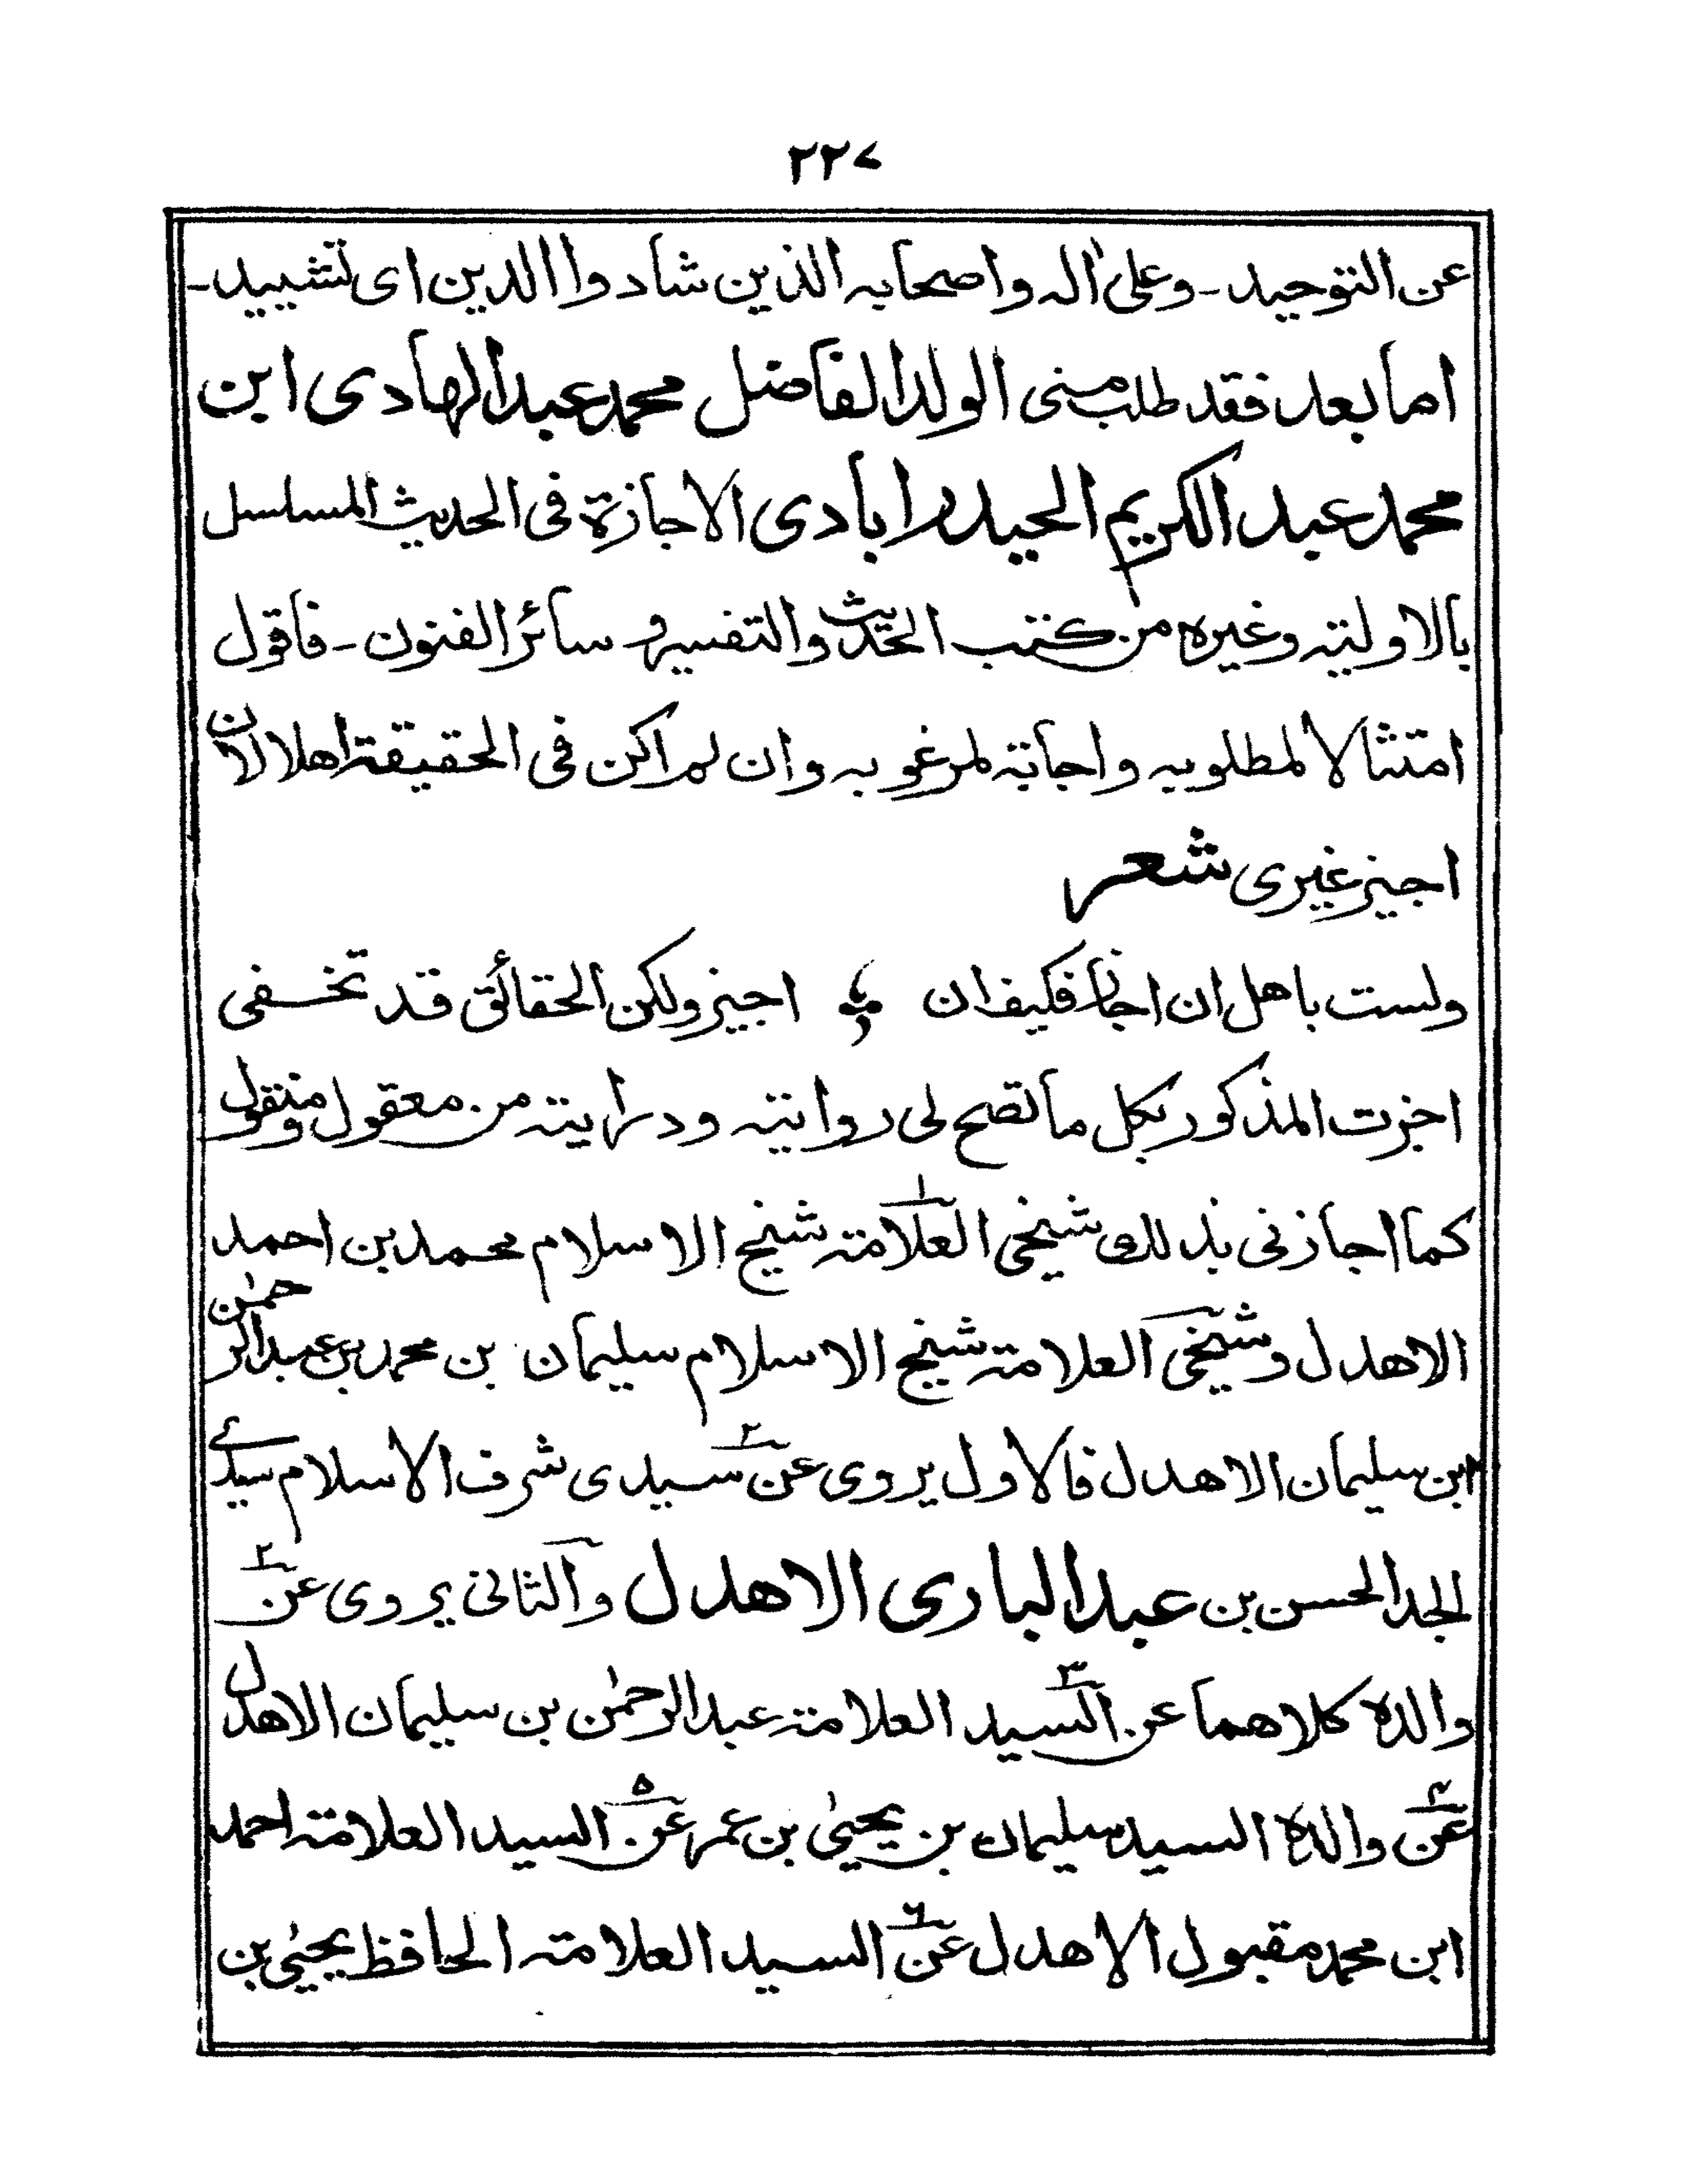 ٢٢٧
عن التوحيد - وعلى اٰله واصحابه الذين شادوا الدين اى تشييد -
اما بعد فقد طلب منى الولد الفاضل محمد عبد الهادى ابن
محمد عبد الكريم الحيدرابادى الاجازة فى الحديث المسلسل
بالاولية وغيره من كتب الحديث والتفسير و سائر الفنون - فاقول
امتثالا لمطلوبه واجابة لمرغوبه وان لم اكن فى الحقيقة اهلا لان
اجيز غيرى شعر
ولست باهل ان اجاز فكيف ان اجيز ولكن الحقائق قد تخفى
اجزت المذكور بكل ما تصح لى رواية ودراية من معقول ومنقول
كما اجازنى بذلك شيخى العلامة ١ شيخ الاسلام محمد بن احمد
الاهدل وشيخى العلامة شيخ الاسلام سليمان بن محمد بن عبد الرحمٰن
ابن سليمان الاهدل فالاول يروى عن ٢ سيدى شرف الاسلام سيدے
الجد الحسن بن عبد البارى الاهدل والثانى يروى عن ٢
والده كلاهما عن ٣ السيد العلامة عبد الرحمٰن بن سليمان الاهدل
عن ٤ والده السيد سليمان بن يحيىٰ بن عمر عن ٥ السيد العلامة احمد
ابن محمد مقبول الاهدل عن ٦ السيد العلامة الحافظ يحيىٰ بن